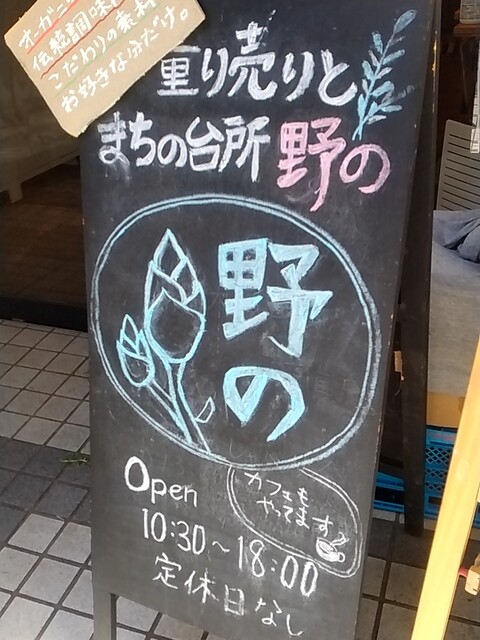 オーガニッ
伝統調味
こだわりの素材
お好きなぶだけ。
量り売りと
まちの台所 野の
野の
カフェも
やってます
Open
10:30～18:00
定休日なし